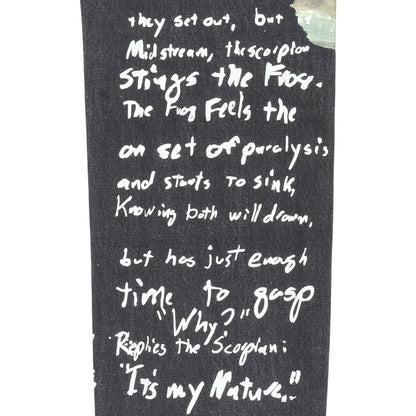 they set out, but
Midstream, the scorpion
stings the Frog.
The Frog Feels the
on set of paralysis
and starts to sink,
Knowing both will drown,
but has just enough
time to gasp
"Why?"
Replies the Scorpian:
"It's my Nature.."